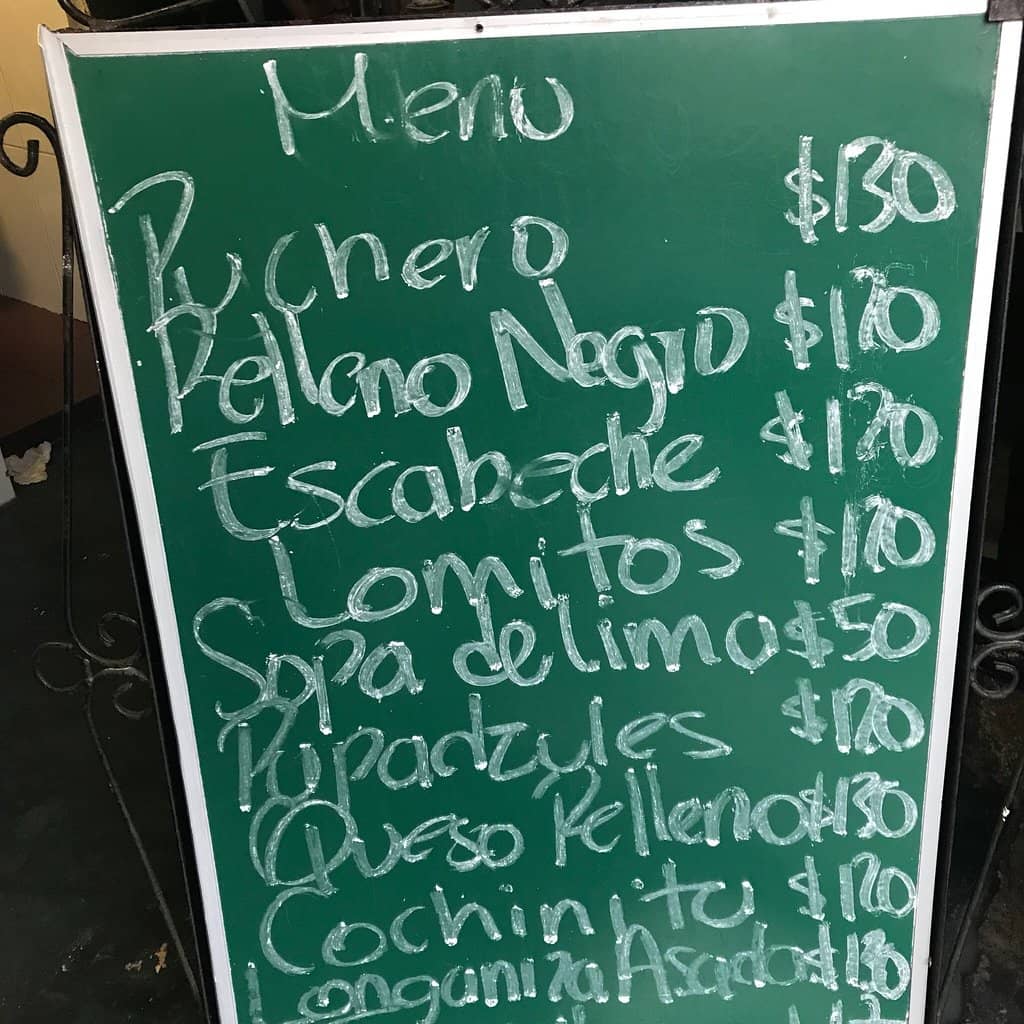 Menu
Puchero $130
Relleno Negro $120
Escabeche $120
Lomitos $120
Sopa de lima $50
Papadzules $120
Queso Relleno $130
Cochinita $120
Longaniza Asada $130